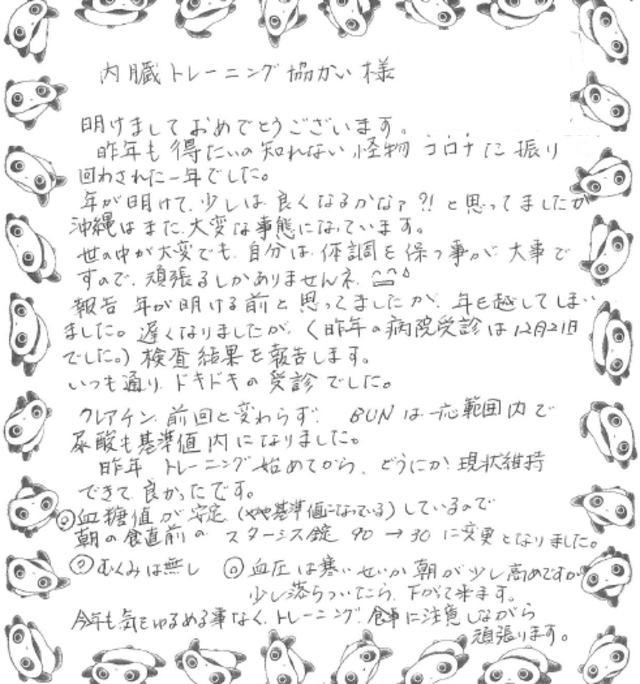 内臓トレーニング協かい様
明けましておめでとうございます。
昨年も得たいの知れない怪物コロナに振り
回わされた一年でした。
年が明けて、少しは良くなるかなァ?!と思ってましたが
沖縄はまた、大変な事態になっています。
世の中が大変でも、自分は、体調を保つ事が大事で
すので、頑張るしかありませんネ.
報告 年が明ける前と思ってましたが、年を越してしまい
ました。遅くなりましたが、(昨年の病院受診は12月21日
でした。)検査結果を報告します。
いつも通り、ドキドキの受診でした。
クレアチン、前回と変わらず、BUNは一応範囲内で
尿酸も基準値内になりました。
昨年 トレーニング始めてから、どうにか現状維持
できて良かったです。
◎血糖値が安定(やや基準値になっている)しているので
朝の食直前の スターシス錠 90→30に変更となりました。
むくみは無し ◎血圧は寒いせいか朝が少し高めですが
少し落ちついたら、下がって来ます。
今年も気をゆるめる事なく、トレーニング、食事に注意しながら
頑張ります。